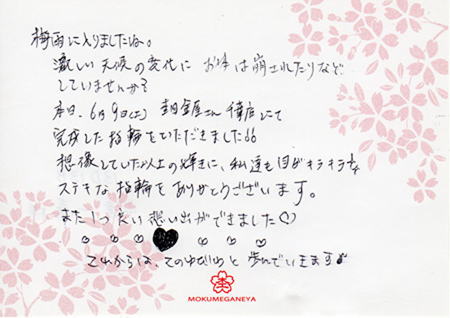 梅雨に入りましたね。
激しい天候の変化に お体は崩されたりなど
していませんか?
本日、6月9日(土) 杢目金屋さん 千葉店にて
完成した指輪をいただきました!!
想像していた以上の輝きに、私達も目がキラキラ☆
ステキな指輪をありがとうございます。
また1つ良い想い出ができました♡
これからは、このゆびわと歩んでいきます♪
杢
MOKUMEGANEYA